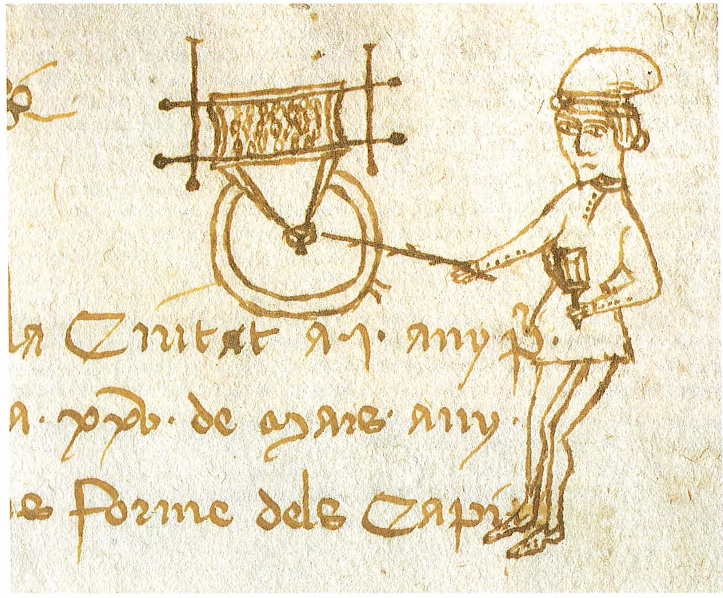 la Ciutat a .j. any p̃.
a. xxv. de mars any.
forme dels Capi